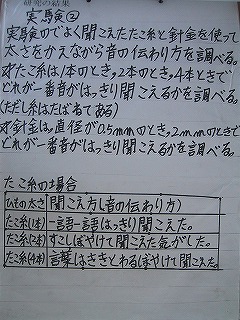 研究の結果
実験②
実験のでよく聞こえたたこ糸と針金を使って
太さをかえながら音の伝わり方を調べる。
※たこ糸は1本のとき,2本のとき,4本ときで
どれが一番音がはっきり聞こえるかを調べる。
(ただし糸はたばねてある)
※針金は,直径が0.5mmのとき,2mmのときで
どれが一番音がはっきり聞こえるかを調べる。
たこ糸の場合
ひもの太さ 聞こえ方(音の伝わり方)
たこ糸(1本) 一語一語はっきり聞こえた。
たこ糸(2本) すこしぼやけて聞こえた気がした。
たこ糸(4本) 言葉はききとれるがぼやけて聞こえた。